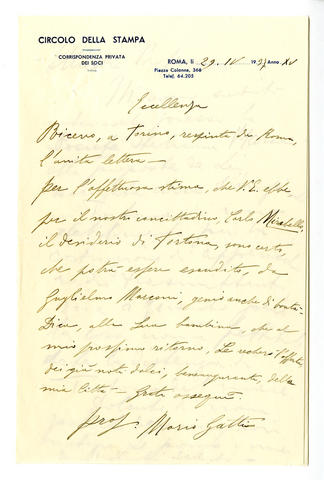 CIRCOLO DELLA STAMPA
CORRISPONDENZA PRIVATA
DEI SOCI
ROMA, li 29. IV 1937 Anno XV
Piazza Colonna, 366
Telef. 64.205
Eccellenza
Ricevo, a Torino, respinta da Roma,
l'unita lettera —
per l'affettuosa stima, che V.E. ebbe
per il nostro concittadino, Carlo Mirabello,
il desiderio di Tortona, sono certo,
che potrà essere esaudito, da
Guglielmo Marconi, genio anche di bontà.
Dica, alla Sua bambina, che al
mio prossimo ritorno, Le recherò l'offerta
dei più noti dolci, beneauguranti, della
mia città — Grato ossequi
prof. Mario Gatti